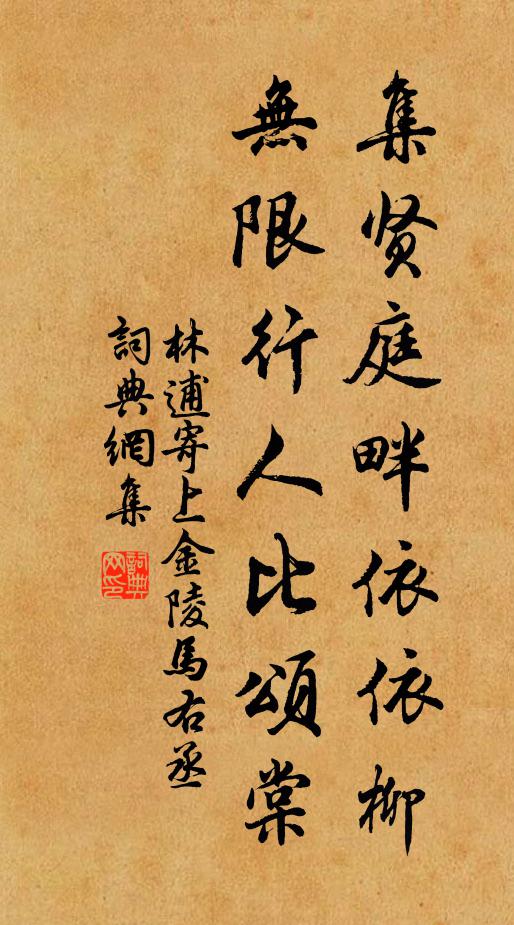 集贤庭畔依依柳
無限行人比頌棠
林逋寄上金陵馬右丞
詞典網集
詞典网印